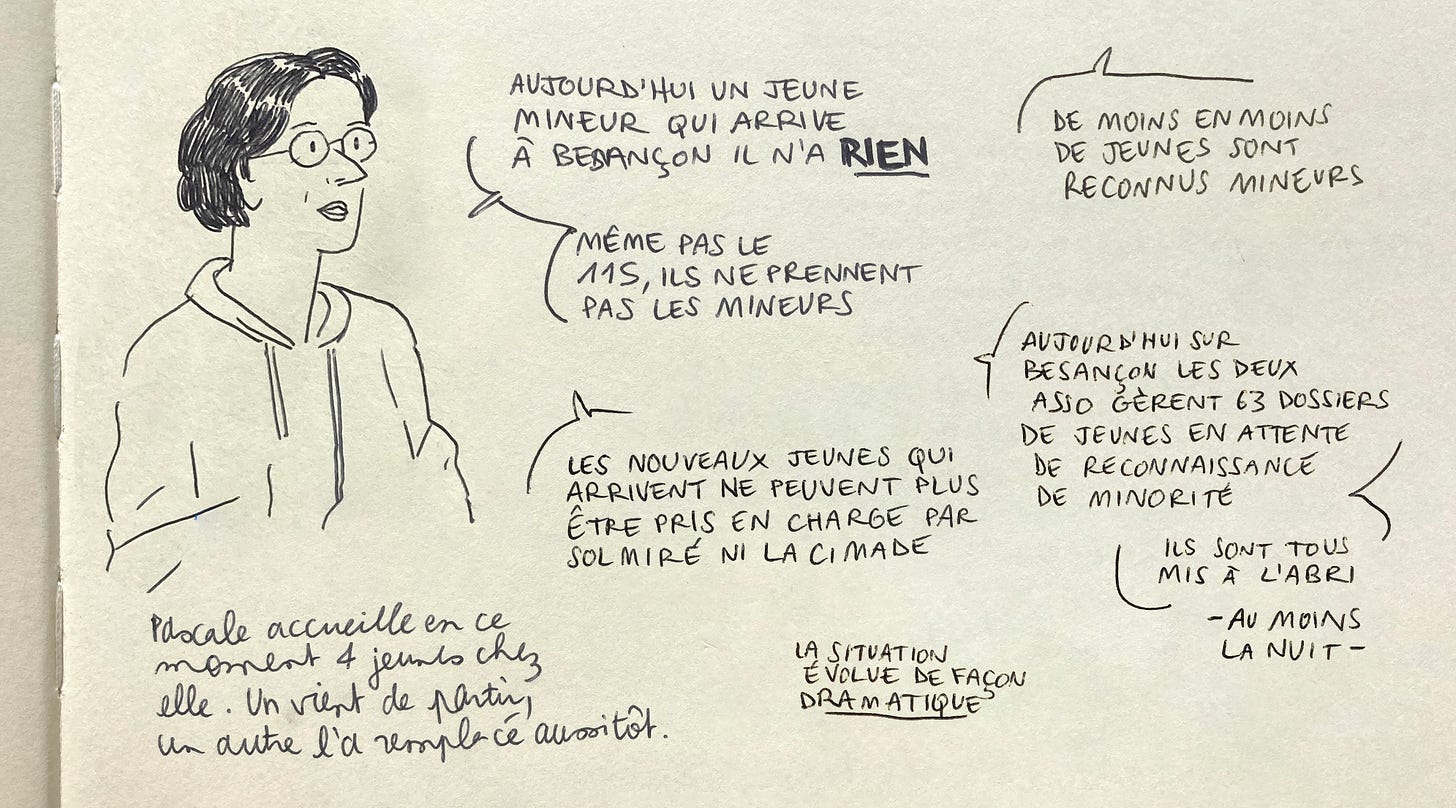 AUJOURD'HUI UN JEUNE
MINEUR QUI ARRIVE
À BESANÇON IL N'A RIEN
MÊME PAS LE
115, ILS NE PRENNENT
PAS LES MINEURS
LES NOUVEAUX JEUNES QUI
ARRIVENT NE PEUVENT PLUS
ÊTRE PRIS EN CHARGE PAR
SOLMIRÉ NI LA CIMADE
DE MOINS EN MOINS
DE JEUNES SONT
RECONNUS MINEURS
AUJOURD'HUI SUR
BESANÇON LES DEUX
ASSO GÈRENT 63 DOSSIERS
DE JEUNES EN ATTENTE
DE RECONNAISSANCE
DE MINORITÉ
ILS SONT TOUS
MIS À L'ABRI
-AU MOINS
LA NUIT-
LA SITUATION
ÉVOLUE DE FAÇON
DRAMATIQUE
Pascale accueille en ce
moment 4 jeunes chez
elle. Un vient de partir,
un autre l'a remplacé aussitôt.